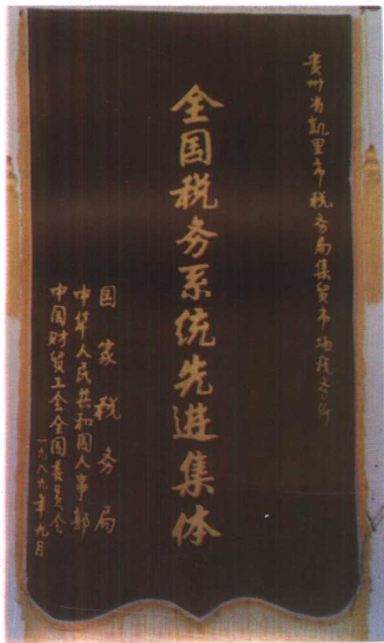 贵州省凯里市税务局集贸市场税务所
全国税务系统先进集体
国家税务局
中华人民共和国人事部
中国财贸工会全国委员会
一九八九年九月